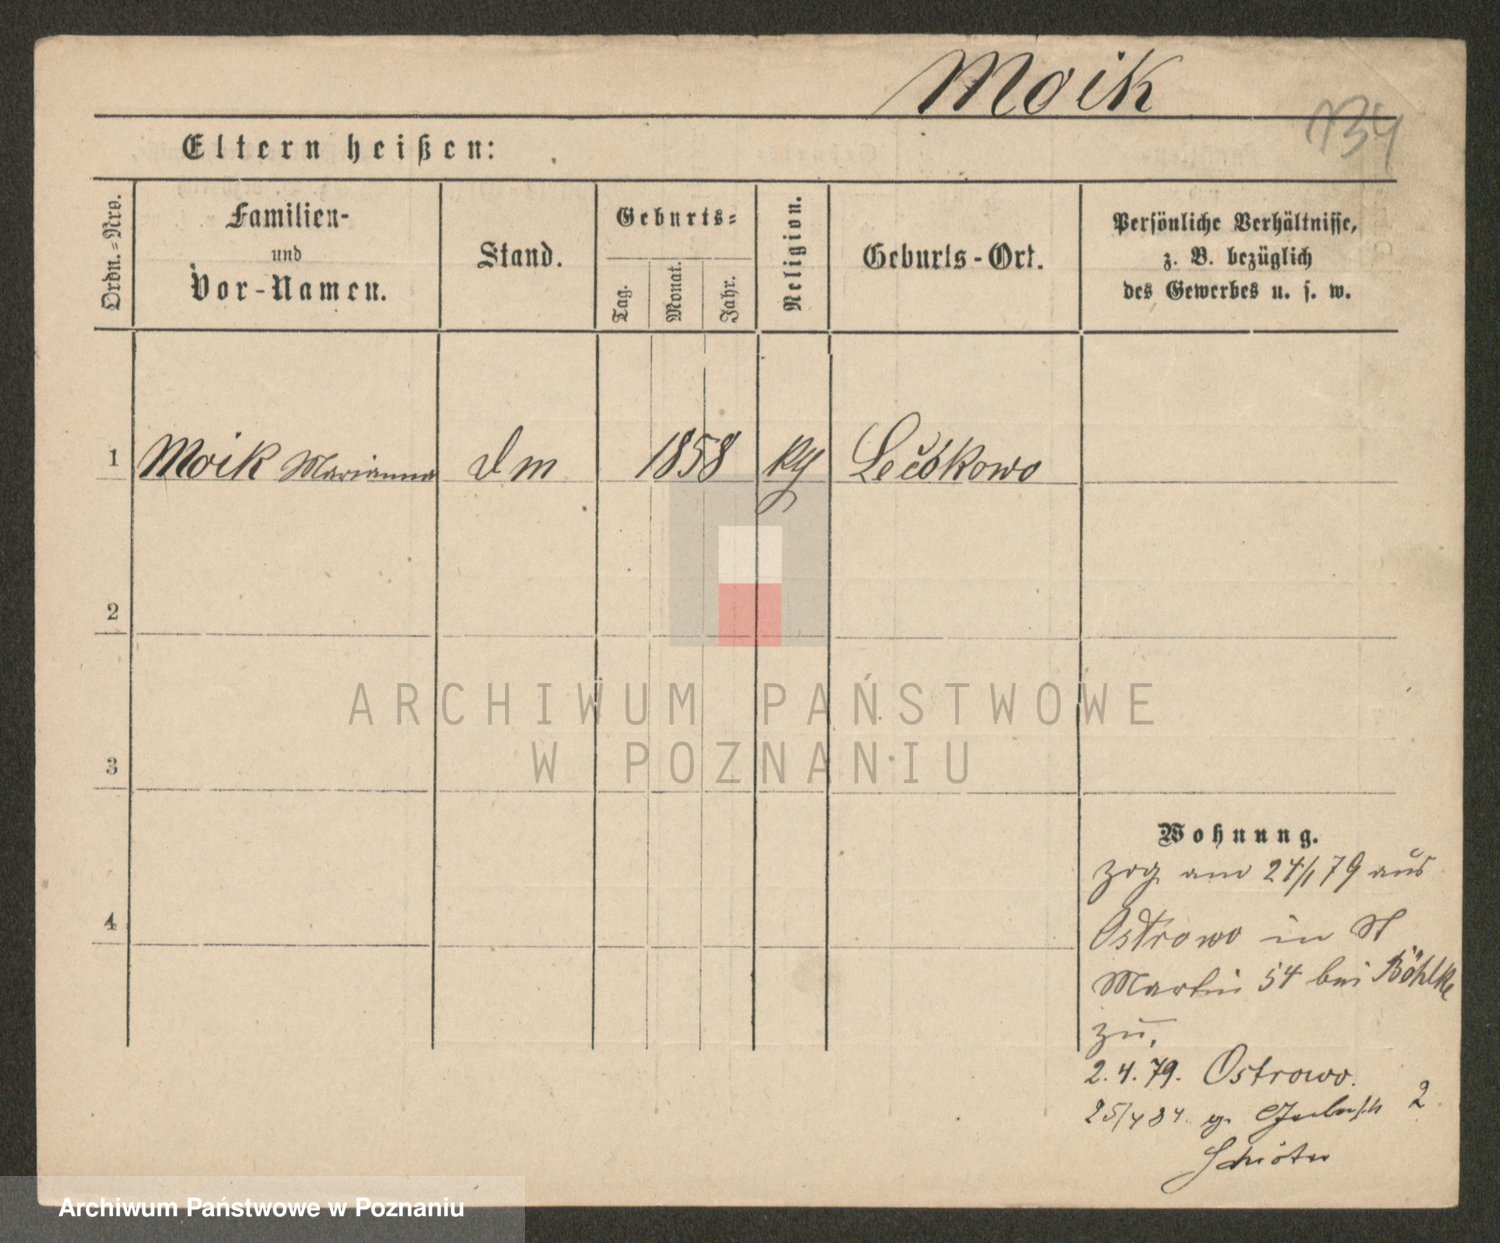 Moik
134
Eltern heißen:
Ordn.=Nro.
Familien-
und
Vor-Namen.
Stand.
Geburts=
Tag.
Monat.
Jahr.
Religion.
Geburts-Ort.
Persönliche Verhältnisse,
z. B. bezüglich
des Gewerbes u. s. w.
1 Moik Marianna dm 1858 kg
2
3
4
Wohnung.
zog am 24/1 79 aus
Ostrowo in St
Martin 54 bei Böhlke
zu.
2.4.79. Ostrowo.
2
ARCHIWUM PAŃSTWOWE
W POZNANIU
Archiwum Państwowe w Poznaniu